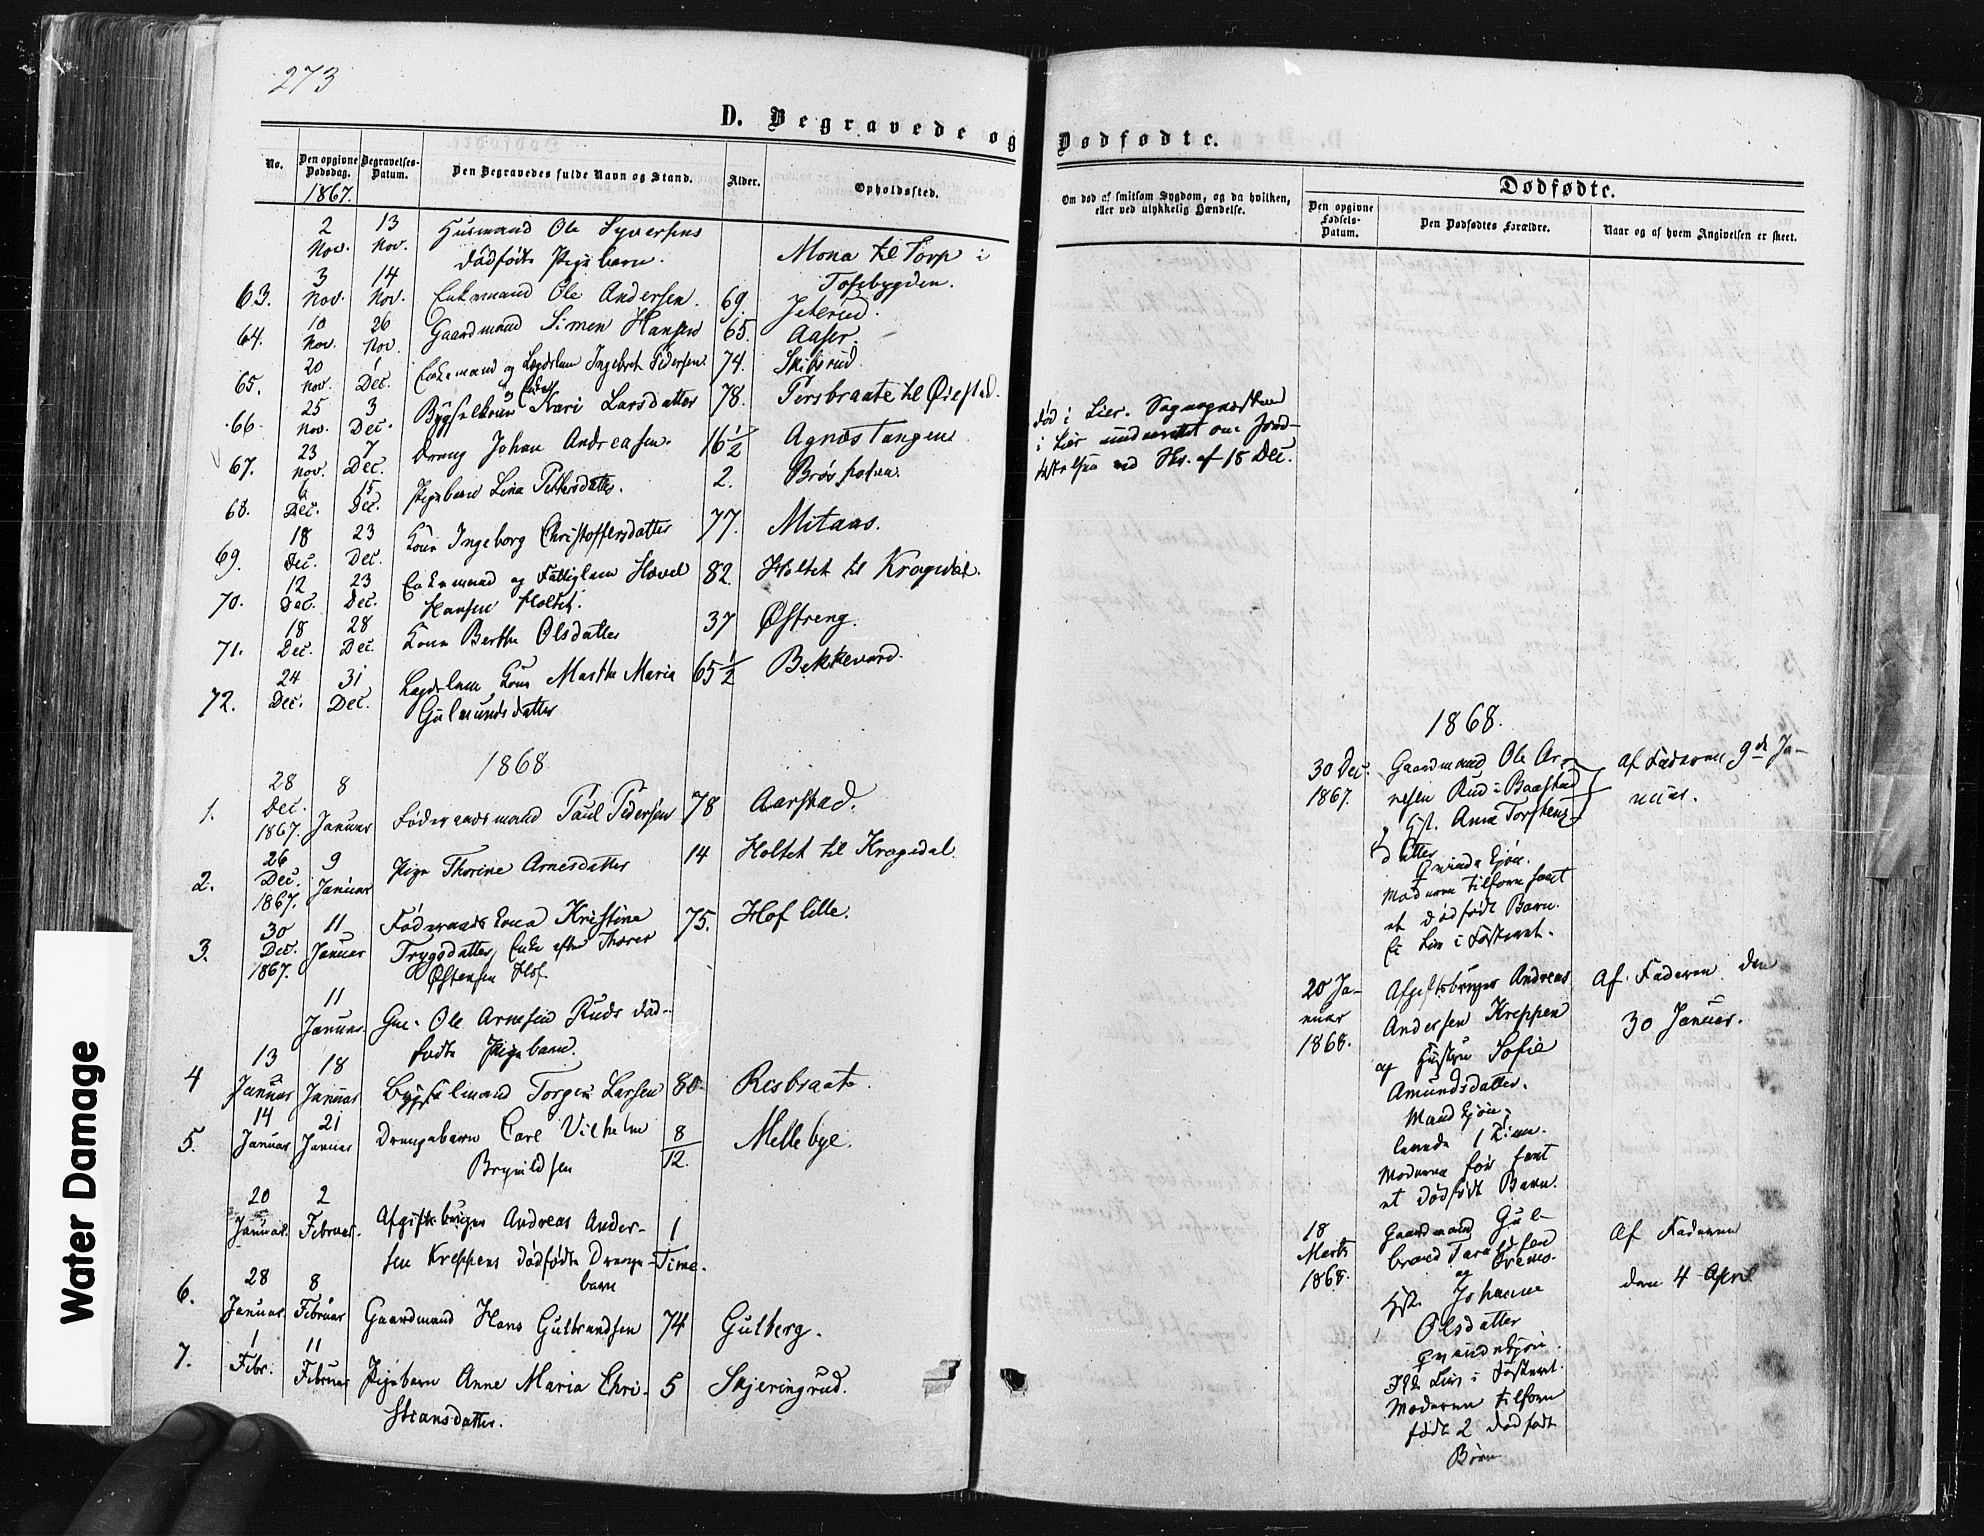 273
D. Begravede og Dødfødte.
No.
Den opgivne Dødsdag.
1867.
Begravelses-Datum.
Den Begravedes fulde Navn og Stand.
Alder.
Opholdssted.
Om død af smitsom Sygdom, og da hvilken,
eller ved ulykkelig Hændelse.
Dødfødte.
Den opgivne Fødsels-Datum.
Den Dødfødtes Forældre.
Naar og af hvem Angivelsen er skeet.
2 Nov. 13 Nov. Husmand Ole Syversens
dødfødte Pigebarn. Mona til Torp i
Tosebygden.
63. 3 Nov. 14 Nov. Enkemand Ole Andersen. 69.
64. 10 Nov. 26 Nov. Gaardmand Simen Hansen 65. Aaser.
65. 20 Nov. 1 Dec. Enkemand og Lægdslem Ingebret Pedersen 74. Skibsrud.
Enke
66. 25 Nov. 3 Dec. Bygselkone Kari Larsdatter 78. Persbraate til Øiestad.
67. 23 Nov. 7 Dec. Dreng Johan Andreasen. 16 1/2 Agnæstangen
død i Lier. Sognepræsten
i Lier underrettet om Jord-
fæstelsen ved Skr. af 18 Dec.
68. 6 Dec. 15 Dec. Pigebarn Lina Pettersdatter. 2.
69. 18 Dec. 23 Dec. Kone Ingeborg Christoffersdatter 77. Mitaas.
70. 12 Dec. 23 Dec. Enkemand og Fattiglem Hovel 82. Holtet til Kragedal.
Hansen Holtet.
71. 18 Dec. 28 Dec. Kone Berthe Olsdatter 37 Østreng.
72. 24 Dec. 31 Dec. Lægdslem Kone Marthe Maria 65 1/2 Bekkevard.
Gulmundsdatter
1868
1. 28 Dec. 1867. 8 Januar Føderaadsmand Paul Pedersen 78 Aarstad.
2. 26 Dec. 1867. 9 Januar Pige Thorine Arnesdatter 14 Holtet til Kragedal.
3. 30 Dec. 1867. 11 Januar Føderaadskona Kristine 75. Hof lille.
Trygsdatter, Enke efter Thorer
Østensen Hof.
11 Januar Gm. Ole Arnesen Ruds død-
fødte Pigebarn.
4 13 Januar 18 Januar Bygselmand Torger Larsen 80. Risbraate.
5. 14 Januar 21 Januar Drengebarn Carl Vilhelm 8/12. Mellebye.
Brynildsen
20 Januar. 2 Februar Afgiftsbruger Andreas Ander- 1
sen Kreppens dødfødte Drenge- Time.
barn
6. 28 Januar. 8 Februar Gaardmand Hans Gulbrandsen 74 Gulberg.
7. 1 Febr. 11 Februar Pigebarn Anne Maria Chri- 5 Skjeringrud.
stiansdatter.
1868.
30 Dec. 1867. Gaardmand Ole Ar-
nesen Rud i Baastad
Hst. Anne Torstens-
datter
Qvindekjøn.
Moderen tilforn født
et dødfødt Barn.
Ei Liv i Fosteret.
af Faderen 9de Ja-
nuar.
20 Ja-
nuar
1868.
Afgiftsbruger Andreas
Andersen Kreppen
og Hustru Sofie
Amundsdatter.
Mandkjøn;
levede 1 Time.
Moderen før født
et dødfødt Barn.
Af Faderen den
30 Januar.
18
Marts
1868.
Gaardmand Gul-
brand Taraldsen
og
Hst. Johanne
Olsdatter
Qvindekjøn.
Ikke Liv i Fosteret.
Moderen tilforn
født 2 dødfødt
Børn
Af Faderen
den 4 April
Water Damage